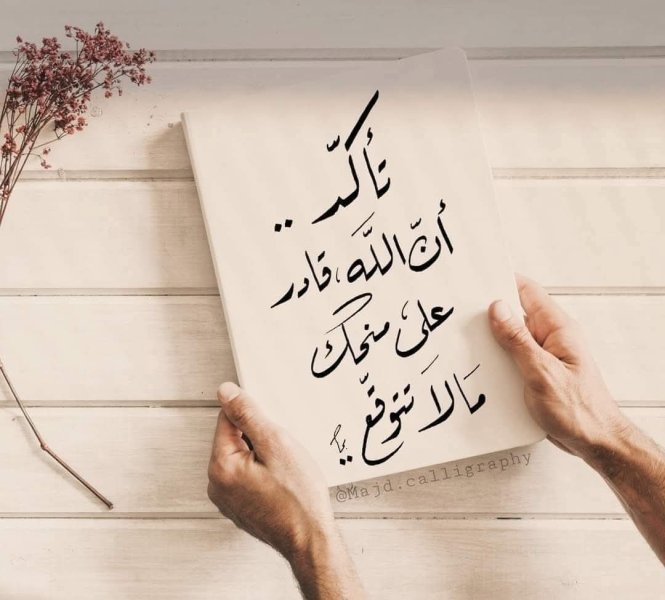 تأكّد ..
أنّ اللَّه قادر
على منحك
مَا لاَ تتوقّع
@Majd.calligraphy